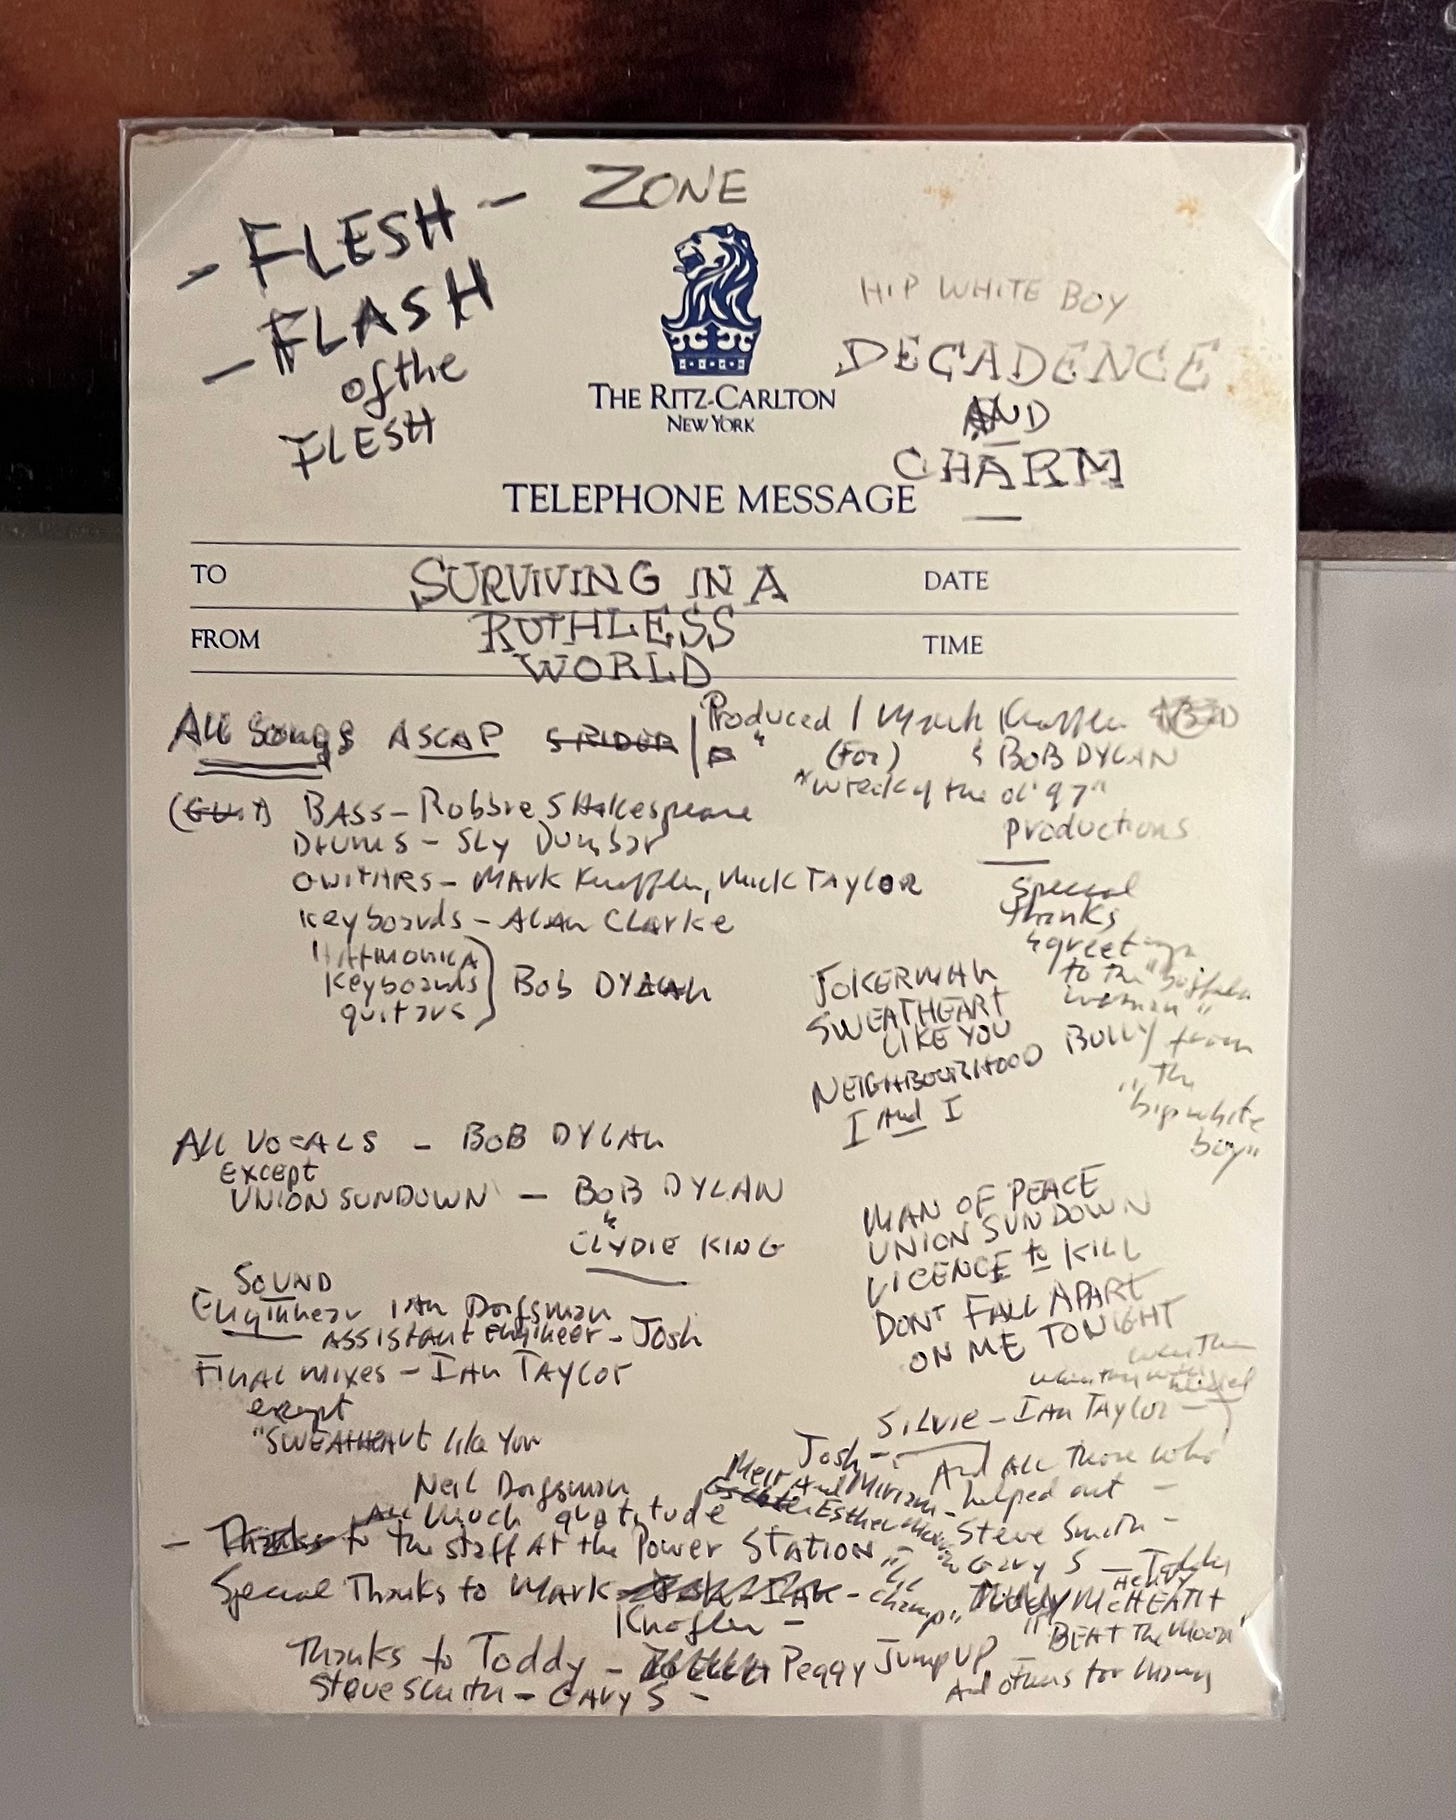 ZONE
- FLESH -
- FLASH
of the
FLESH
HIP WHITE BOY
DECADENCE
AND
CHARM
THE RITZ-CARLTON
NEW YORK
TELEPHONE MESSAGE
TO
DATE
FROM
TIME
SURVIVING IN A
RUTHLESS
WORLD
All Songs ASCAP
Produced / Mark Knopfler
(For) & BOB DYLAN
"wreck of the ol' 97"
productions
BASS - Robbie Shakespeare
Drums - Sly Dunbar
GUITARS - MARK Knopfler, Mick TAYLOR
Keyboards - ALAN CLARKE
HARMONICA
Keyboards
guitars
Bob DYLAN
Special
thanks
& greetings
to the "buffalo
woman"
BULLY from
the
"hip white
boy"
JOKERMAN
SWEATHEART
LIKE YOU
NEIGHBOURHOOD
I And I
ALL VOCALS - BOB DYLAN
EXCEPT
UNION SUNDOWN - BOB DYLAN
&
CLYDIE KING
MAN OF PEACE
UNION SUNDOWN
LICENCE to KILL
DONT FALL APART
ON ME TONIGHT
SOUND
Enginnear
ASSISTANT Engineer - Josh
Final mixes - IAN TAYLOR
except
"SWEATHEART like You
Neil Dorfsman
ALL Much gratitude
- Thanks to the staff At the Power STATION
Special Thanks to Mark
Knofler -
Thanks to Toddy - Peggy
Steve Smith - GARY S -
Silvie - IAN TAYLOR -
Josh -
And ALL Those who
Meir And Miriam - helped out -
Esther
Steve Smith -
Gary S - Toddy
McHEATH
"BEAT The Moon"
JUMP UP
And others for Moony